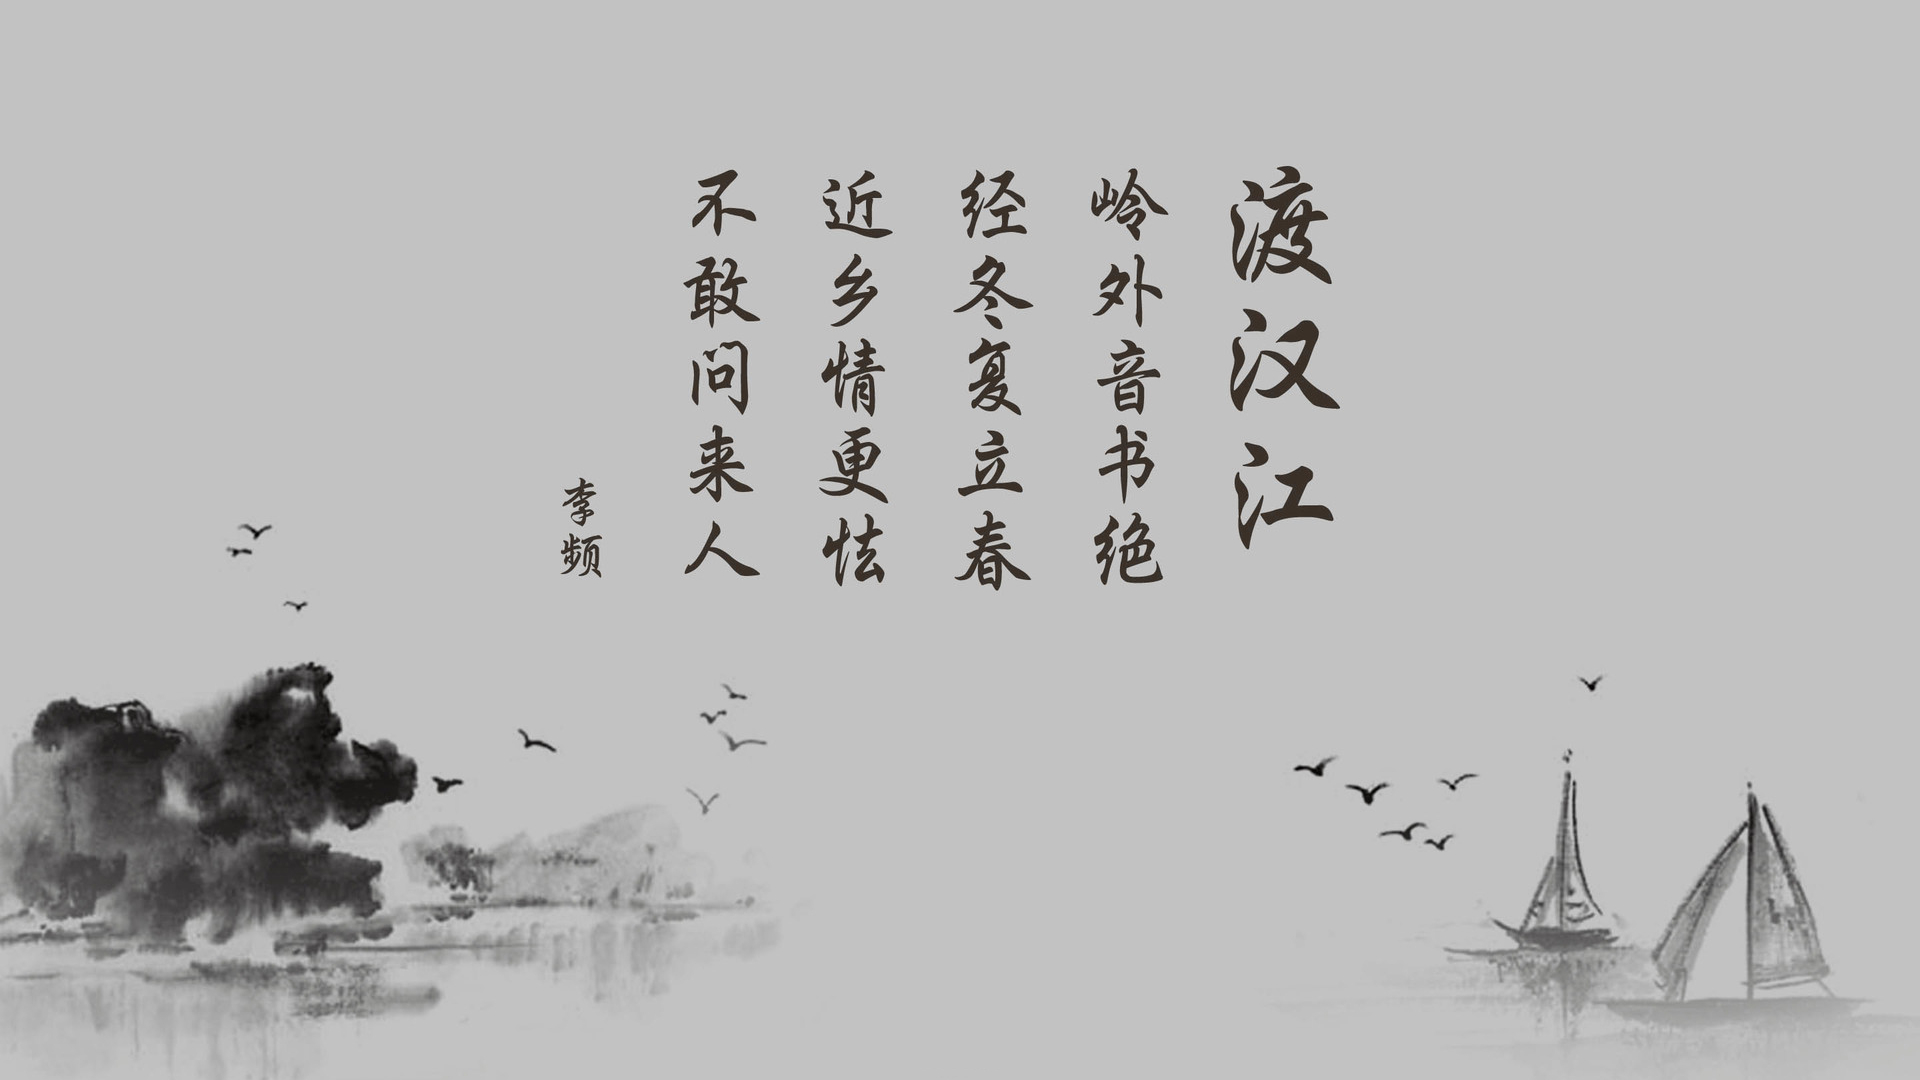 渡汉江
岭外音书绝
经冬复立春
近乡情更怯
不敢问来人
李频